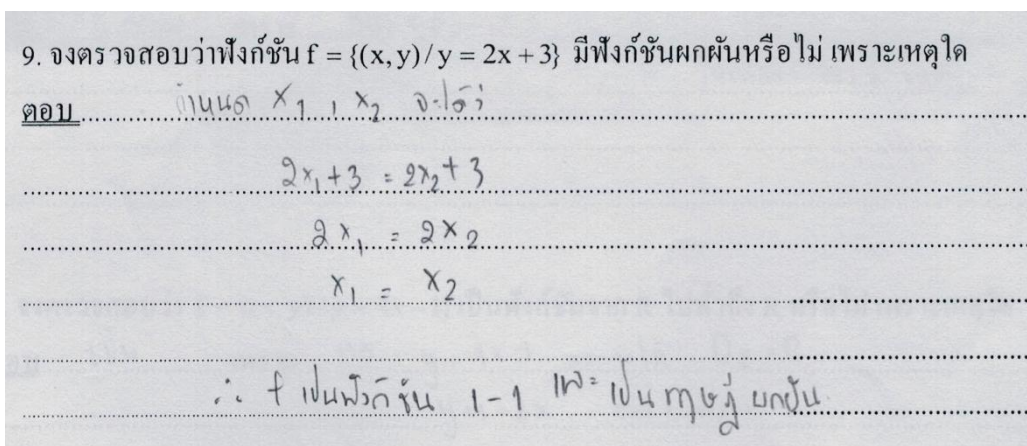 9. จงตรวจสอบว่าฟังก์ชัน f = {(x, y) / y = 2x + 3} มีฟังก์ชันผกผันหรือไม่ เพราะเหตุใด
ตอบ กำหนด x₁ , x₂ จะได้ว่า
2x₁ + 3 = 2x₂ + 3
2x₁ = 2x₂
x₁ = x₂
∴ f เป็นฟังก์ชัน 1-1 เป็น